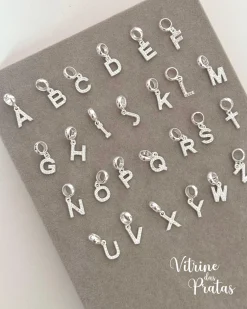 A B C D E F
G H I J K L M
N O P Q R S T
U V X Y W Z
Vitrine
das
Pratas